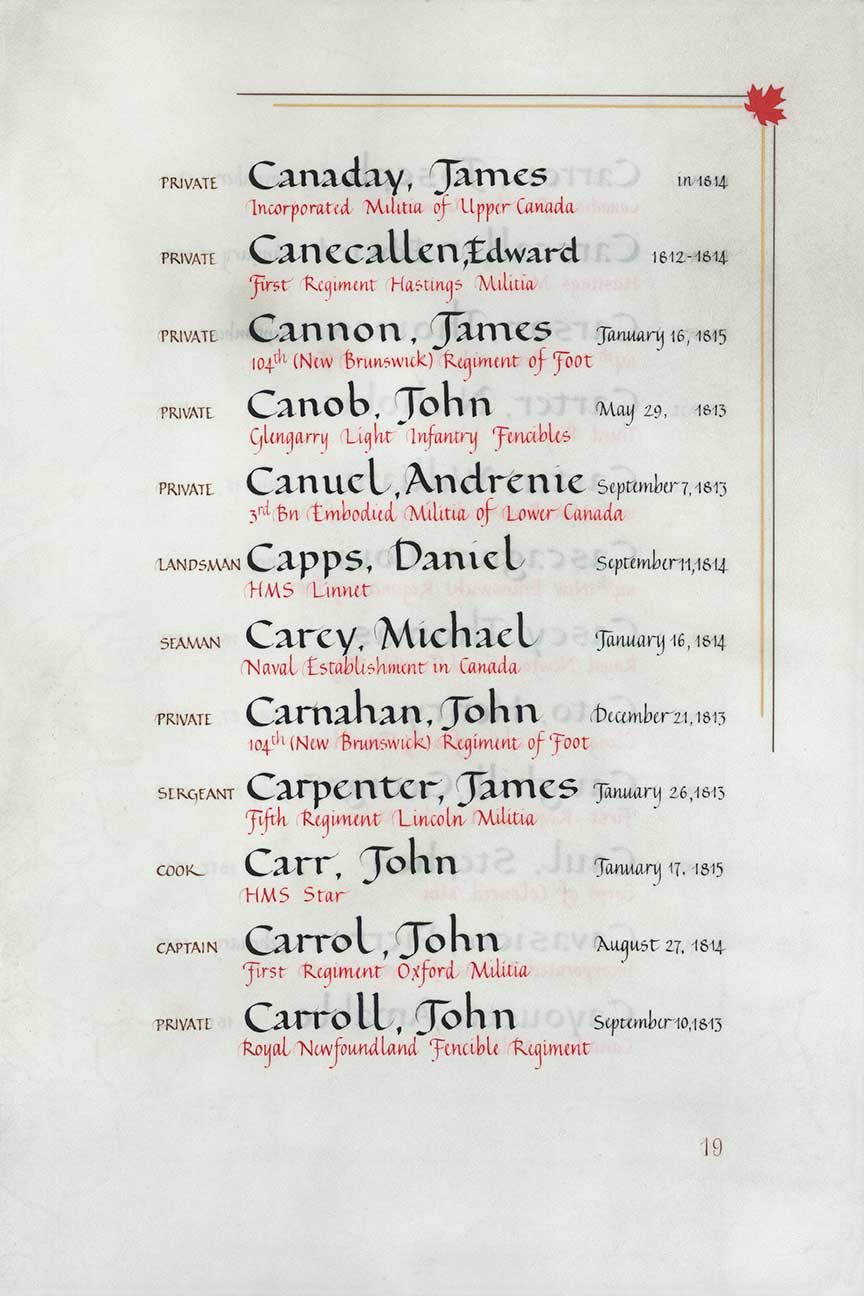 PRIVATE Canaday, James in 1814
Incorporated Militia of Upper Canada
PRIVATE Canecallen, Edward 1812-1814
First Regiment Hastings Militia
PRIVATE Cannon, James January 16, 1815
104th (New Brunswick) Regiment of Foot
PRIVATE Canob, John May 29, 1813
Glengarry Light Infantry Fencibles
PRIVATE Canuel, Andrenie September 7, 1813
3rd Bn Embodied Militia of Lower Canada
LANDSMAN Capps, Daniel September 11, 1814
HMS Linnet
SEAMAN Carey, Michael January 16, 1814
Naval Establishment in Canada
PRIVATE Carnahan, John December 21, 1813
104th (New Brunswick) Regiment of Foot
SERGEANT Carpenter, James January 26, 1813
Fifth Regiment Lincoln Militia
COOK Carr, John January 17, 1815
HMS Star
CAPTAIN Carrol, John August 27, 1814
First Regiment Oxford Militia
PRIVATE Carroll, John September 10, 1813
Royal Newfoundland Fencible Regiment
19